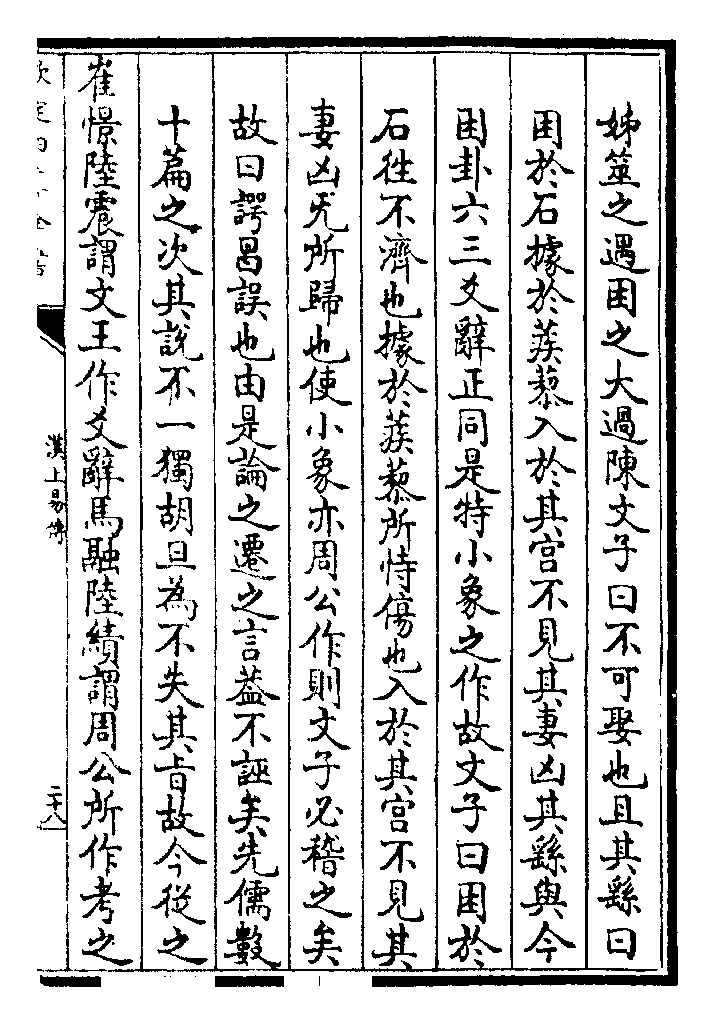 姊筮之遇困之大過陳文子曰不可娶也且其繇曰
困於石據於蒺藜入於其宮不見其妻凶其繇與今
困卦六三爻辭正同是特小象之作故文子曰困於
石徃不濟也據於蒺藜所恃傷也入於其宮不見其
妻凶旡所歸也使小象亦周公作則文子必稽之矣
故曰諤昌誤也由是論之遷之言葢不誣矣先儒數
十篇之次其說不一獨胡旦為不失其旨故今從之
崔憬陸震謂文王作爻辭馬融陸績謂周公所作考之
漢上易傳
二十八